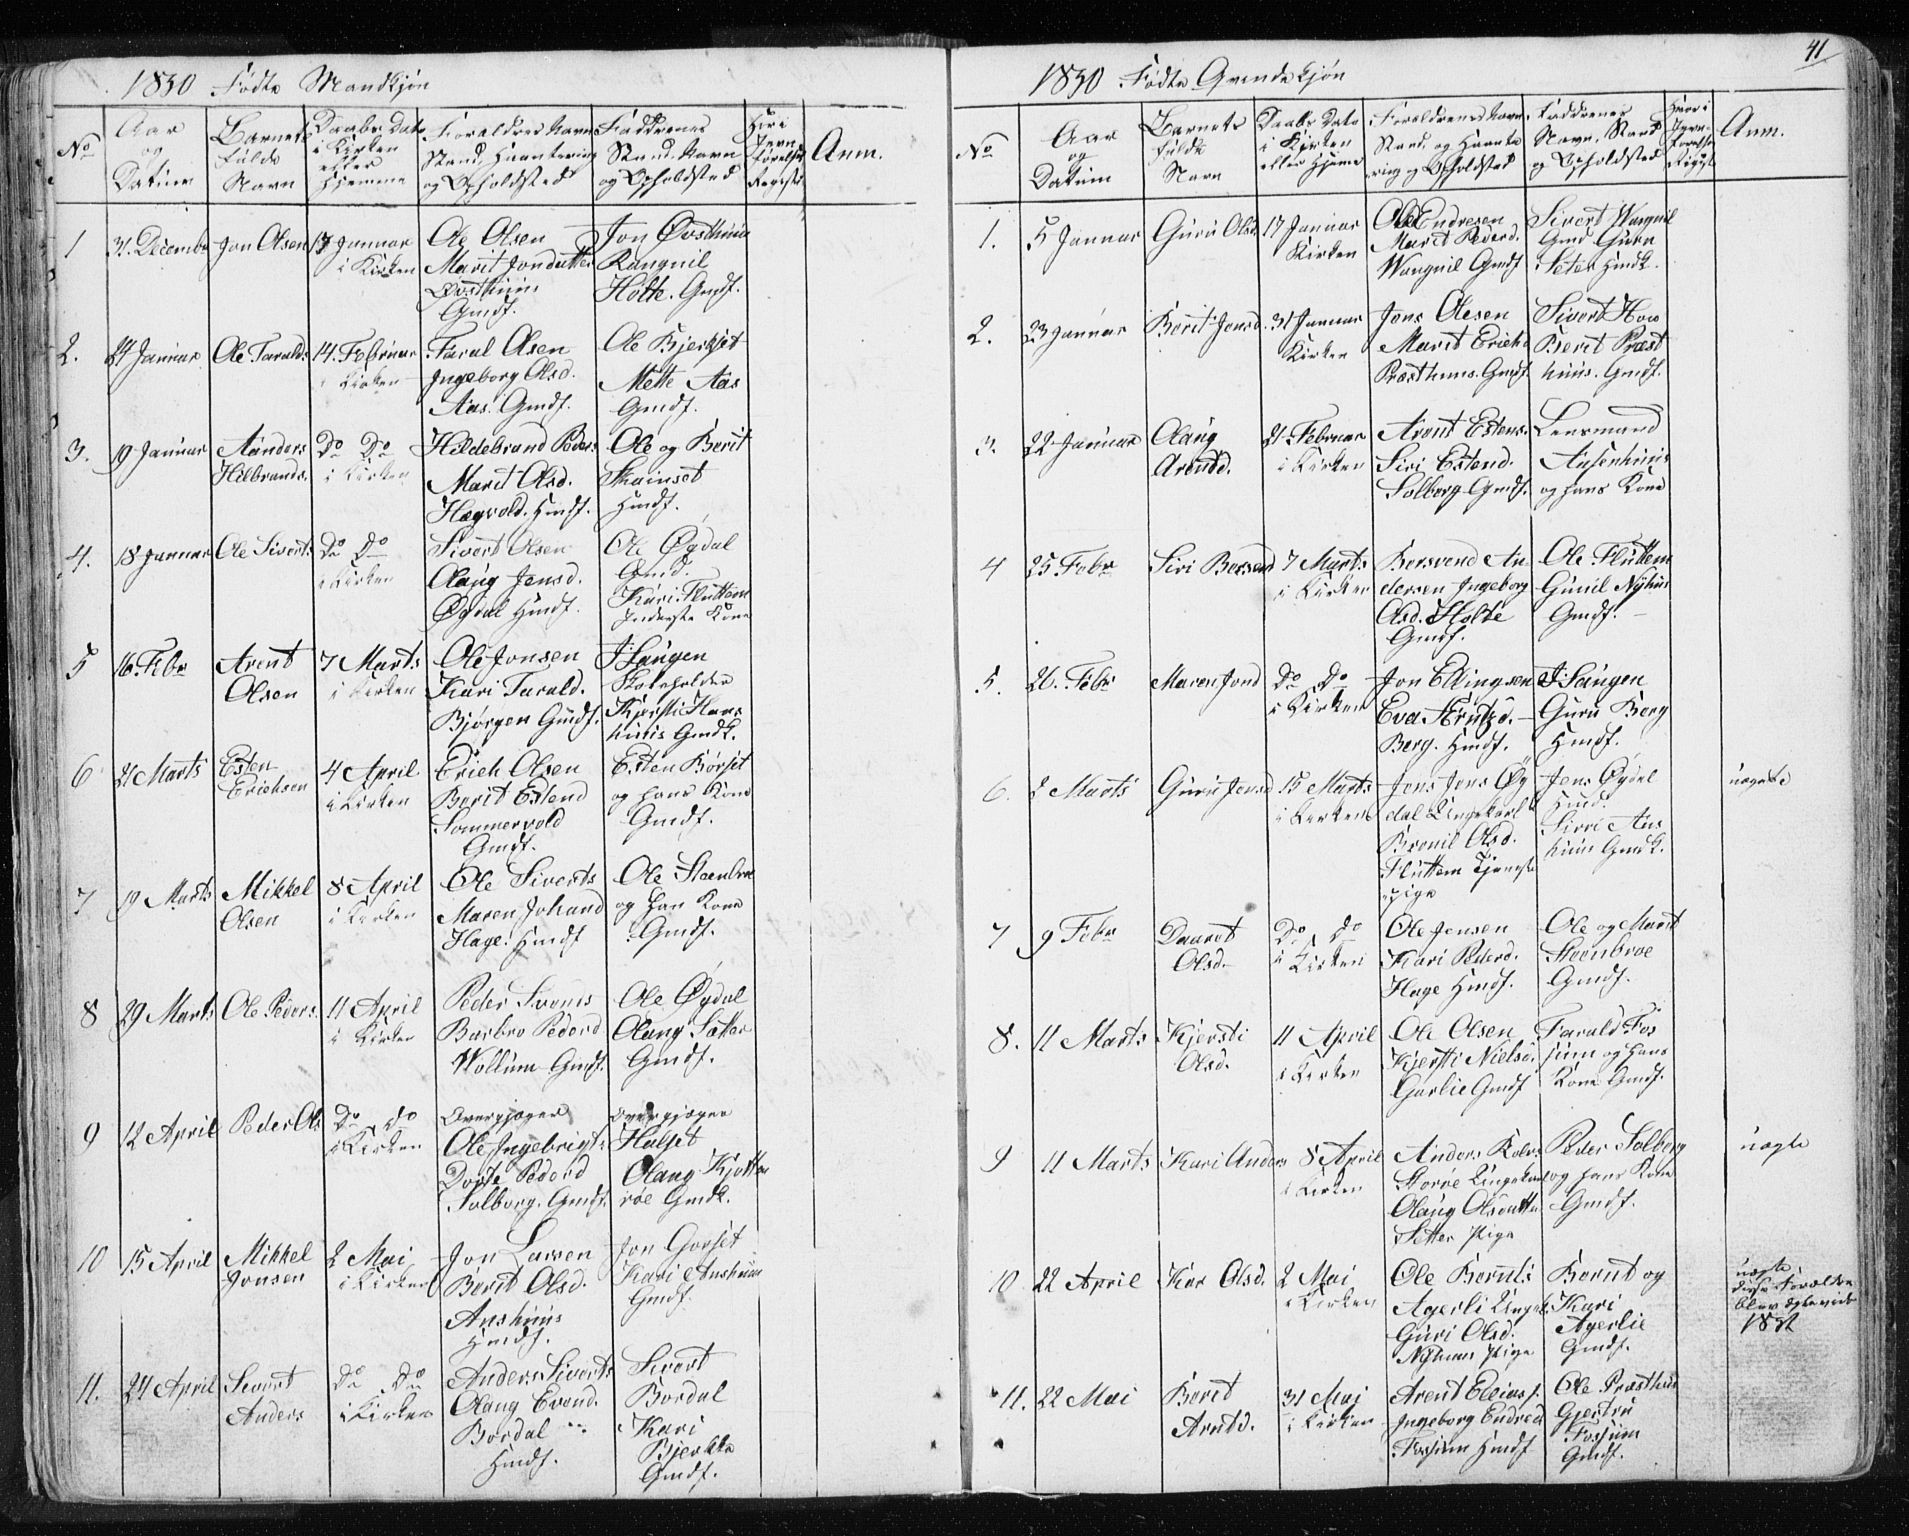 1830 Fødte Mandkjøn
No
Aar
og
Datum
Barnets
fulde
Navn
Daabs Dato
i Kirken
eller
Hjemme
Forældres Navn
Stand, Haantering
og Opholdsted
Faddrenes
Stand, Navn
og Opholdsted
Anm.
1
31. Decembr
Jon Olsen
17 Januar
i Kirken
Ole Olsen
Marit Jonsdatter
Østhuus
Gmdf.
Jon Østhuus
Rangnil
Holte. Gmdf.
2.
24 Januar
Ole Taralds.
14. Februar
i Kirken
Taral Olsen
Ingeborg Olsd.
Aas. Gmdf.
Ole Bjerkset
Mette Aas
Gmdf.
3.
19 Januar
Aanders
Hilbrands.
Do Do
i Kirken
Hildebrand Peders.
Marit Olsd.
Hægvold. Hmdf.
Ole og Berit
Skainset
Hmdf.
4.
18 Januar
Ole Siverts.
Do Do
i Kirken
Sivert Olsen
Olaug Jensd.
Øydal Hmdf.
Ole Øydal
Gmd.
Kari Fluttem
Inderste Kone
5
16. Febr
Arent
Olsen
7 Marts
i Kirken
Ole Jonsen
Kari Tarald.
Bjørgen Gmdf.
J: Laugen
Skoleholder
Kjersti Hans
huus Gmdk.
6
21 Marts
Esten
Erichsen
4 April.
i Kirken
Erich Olsen
Berit Estend
Sommervold
Gmdf.
Esten Børset
og hans Kone
Gmdf.
7
19 Marts
Mikkel
Olsen
8 April
i Kirken
Ole Siverts
Maren Johand
Hage. Hmdf
Ole Steenbroe
og han Kone
Gmdf.
8
29 Marts
Ole Peders.
11 April
i Kirken
Peder Svends
Barbro Pederd
Wollum Gmdf.
Ole Øydal
Olaug Sætter
Gmdf.
9
12 April
Peder Ols
Do Do
i Kirken
Overjæger
Ole Ingebrigts.
Dorte Pederd
Solberg. Gmdf.
Overjæger
Halset
Olaug Kjotte
røe Gmdk.
10
15 April
Mikkel
Jonsen
2 Mai
i Kirken
Jon Larsen
Berit Olsd.
Aushuus
Hmdf.
Jon Gorset
Kari Aushuus
Gmdf.
11.
24 April
Sivert
Anders
Do Do
i Kirken
Anders Siverts
Olaug Evend.
Bordal
Hmdf.
Sivert
Bordal
Kari
Bjerkke
Gmdf.
41
1830 Fødte Qvindekjøn
No
Aar
og
Datum
Barnets
fulde
Navn
Daabs Dato
i Kirken
eller Hjeme
Forældrenes Navn
Stand og Haante
ring og Opholdsted
Faddrenes
Navn, Stand
og Opholdsted
Anm.
1.
5 Januar
Guru Olsd.
17 Januar
Kirken
Ole Endresen
Marit Pederd.
Wangnil Gmdf
Sivert Wangnil
Gmd Guru
Seter Hmdk.
2.
23 Januar
Berit Jensd.
31 Januar
Kirken
Jens Olesen
Marit Erichd
Præsthuus. Gmdf.
Sivert Hov
Berit Præst
huus. Gmdf.
3.
22 Januar
Olaug
Arentd.
21 Februar
i Kirken
Arent Estens.
Siri Estend.
Solberg Gmdf.
Lensmand
Ausenhuus
og hans Kone
4
25 Febr
Siri Bersend
7 Marts
i Kirken
Bersvend An
dersen Ingeborg
Olsd. Holte
Gmdf.
Ole Fluttem
Gunil Nyhuus
Gmdf.
5.
26. Febr
Maren Jond
Do Do
i Kirken
Jon Ellingsen
Eva
Berg. Hmdf.
J: Laugen
Guru Berg
Hmdf.
6.
2 Marts
Guru Jensd
15 Marts
i Kirken
Jens Jens Øy
dal Ungekarl
Bronil Olsd.
Fluttem Tjeneste
pige
Jens Øydal
Hmd.
Sirri Aus
huus Gmdk.
uægte
7
9 Febr
Dauret
Olsd.
Do Do
i Kirken
Ole Jensen
Kari Pederd.
Hage Hmdf.
Ole og Marit
Steenbroe
Gmdf.
8.
11 Marts
Kjersti
Olsd.
11 April
i Kirken
Ole Olsen
Kjersti Nielsd.
Garlie Gmdf
Tarald Fos
sum og hans
Kone Gmdf.
9
11 Marts
Kari Anders
8 April
i Kirken
Anders Kolv.
Storøe Ungekarl
Olaug Olsdatter
Setter Pige
Peder Solberg
og hans Kone
Gmdf.
uægte
10.
22 April
Kar Olsd.
2 Mai
i Kirken
Ole Bernts
Agerli Ungek.
Guri Olsd.
Nyhuus Pige
Bernt og
Kari
Agerlie
Gmdf.
uægte
disse Forældre
blev ægteviede
1831
11.
22 Mai
Berit
Arntd.
31 Maj
i Kirken
Arent Eliass.
Ingeborg Endred
Fossum Hmdf
Ole Præsthuus
Gjertru
Fossum
Gmdf.